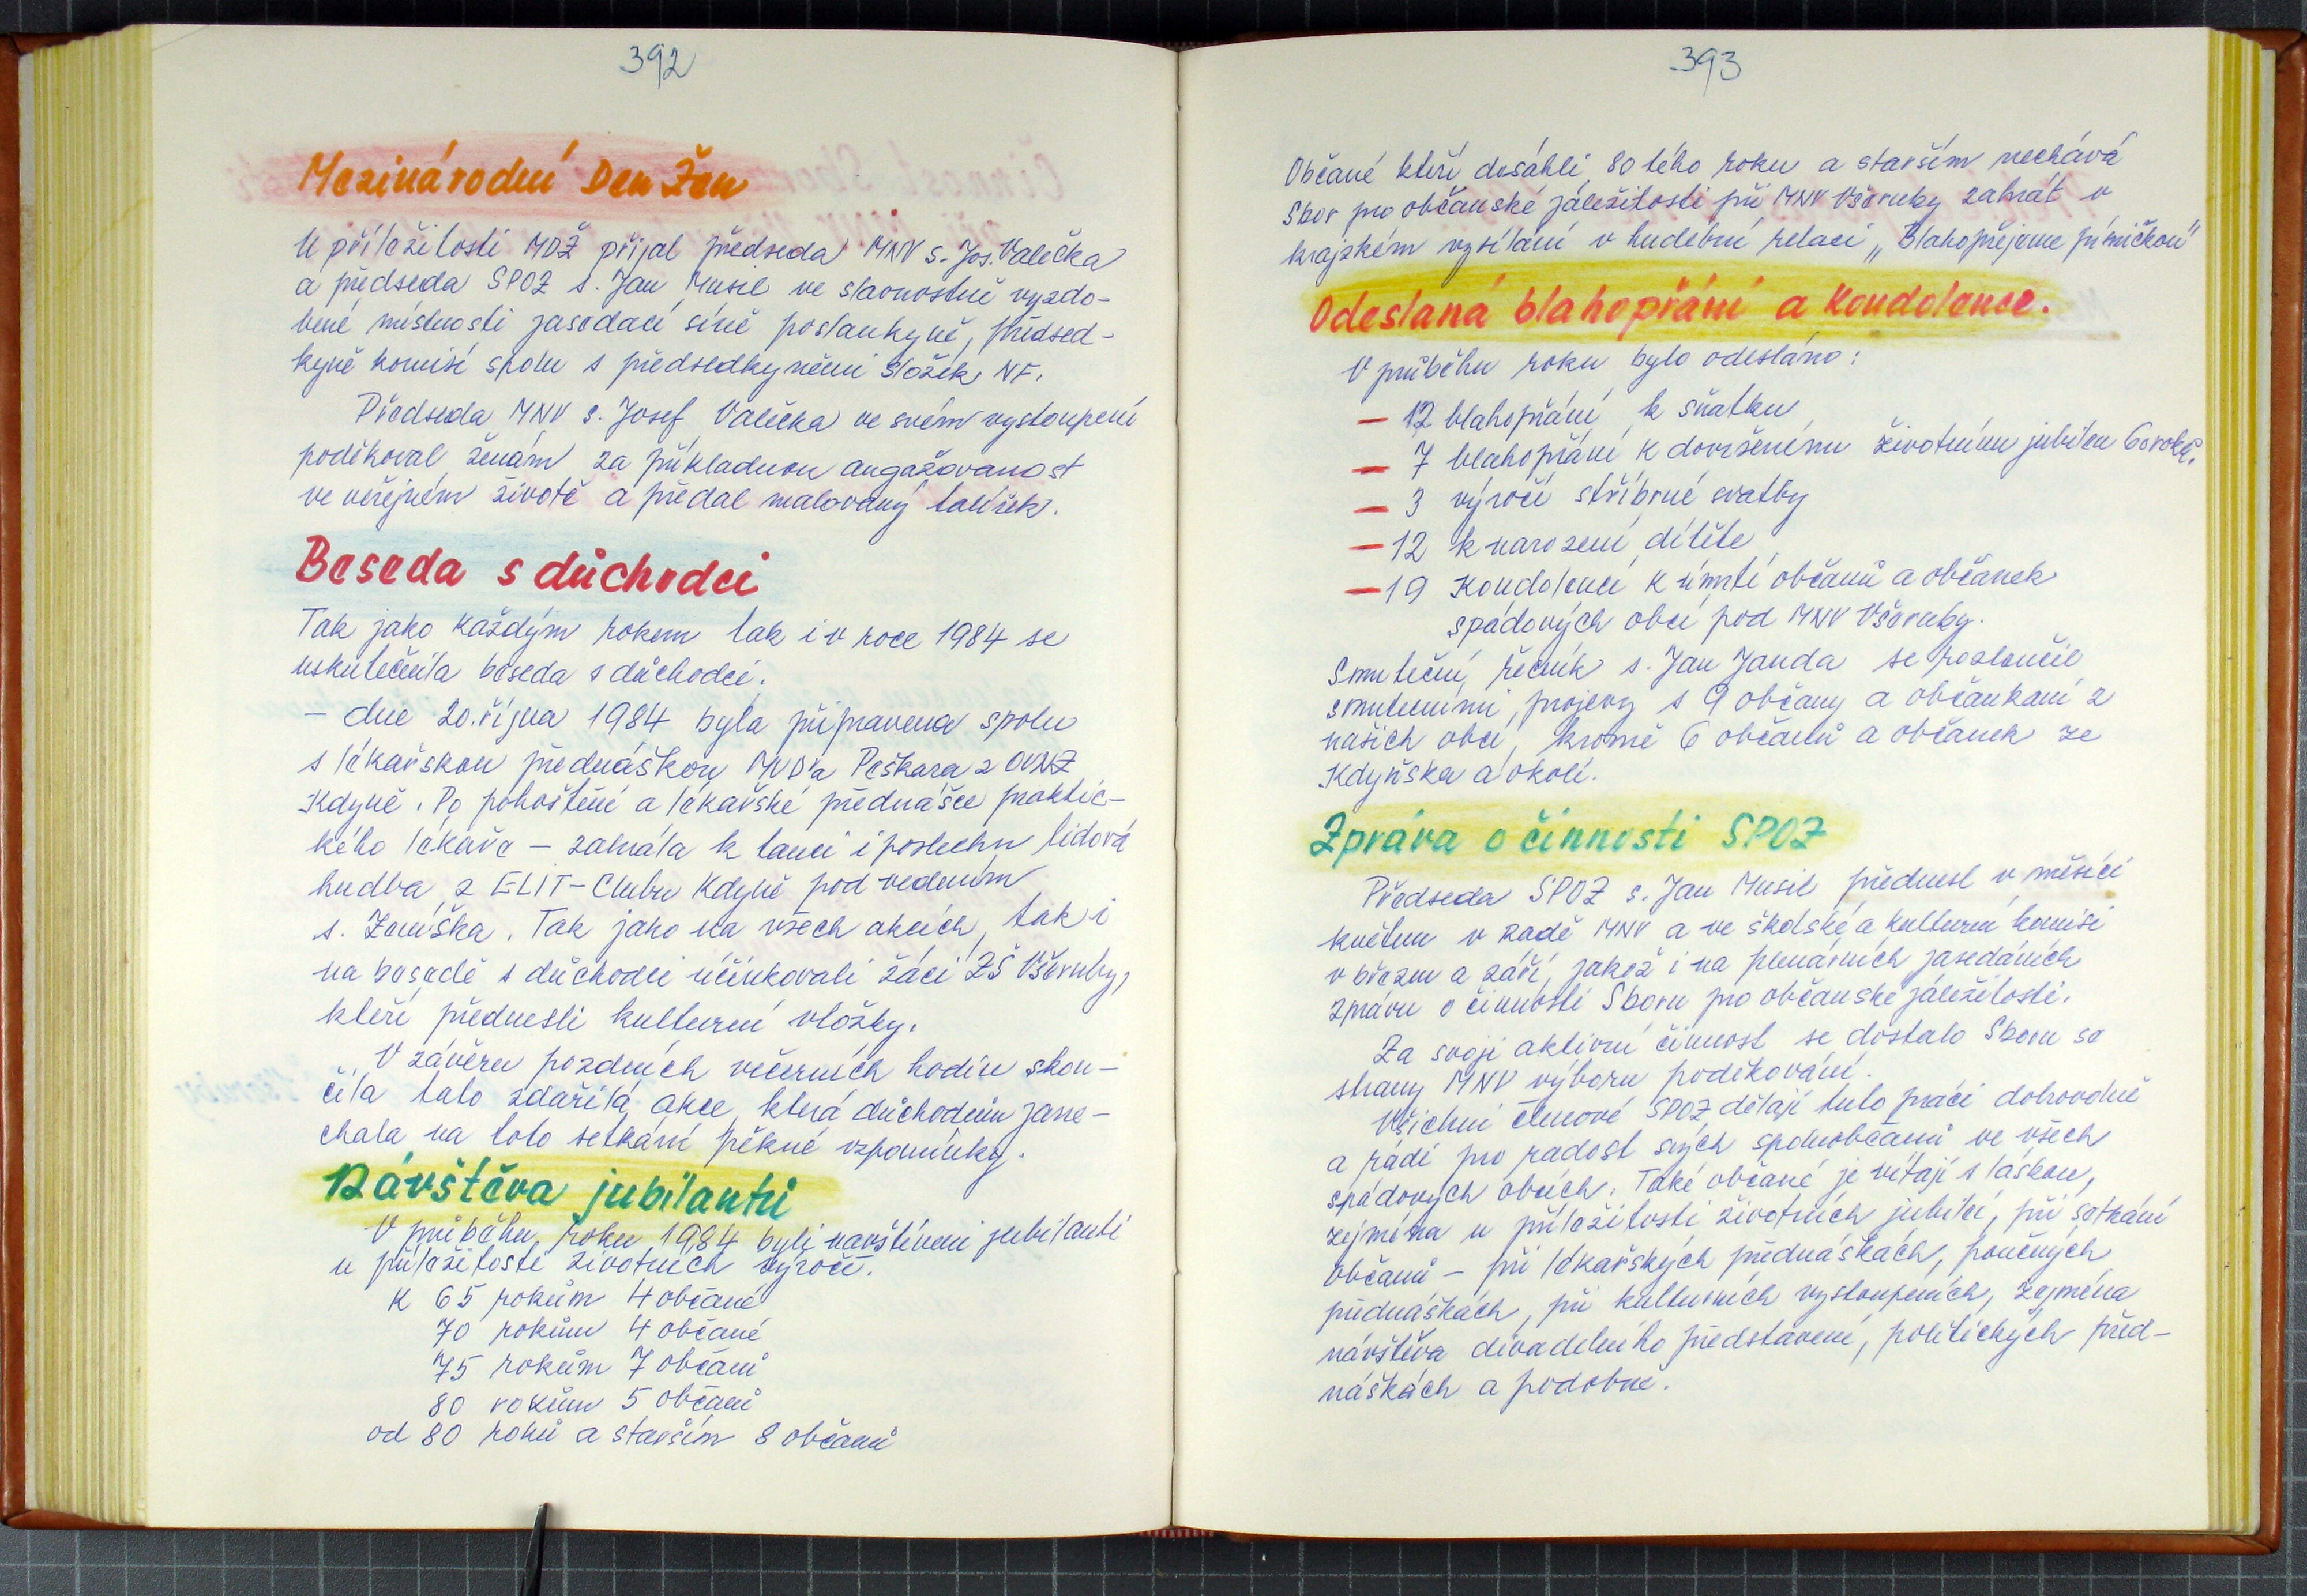 392
Mezinárodní Den Žen
U příležitosti MDŽ přijal předseda MNV s. Jos. Valečka
a předseda SPOZ s. Jan Musil ve slavnostně vyzdo-
bené místnosti zasedací síně poslankyně, předsed-
kyně komisí spolu s předsedkyněmi složek NF.
Předseda MNV s. Josef Valečka ve svém vystoupení
poděkoval ženám za příkladnou angažovanost
ve veřejném životě a předal malovaný talířek.
Beseda s důchodci
Tak jako každým rokem tak i v roce 1984 se
uskutečnila beseda s důchodci.
– dne 20. října 1984 byla připravena spolu
s lékařskou přednáškou MUDra Peškara z OÚNZ
Kdyně. Po pohoštění a lékařské přednášce praktic-
kého lékaře – zahrála k tanci i poslechu lidová
hudba z ELIT-Clubu Kdyně pod vedením
s. Tak jako na všech akcích, tak i
na besedě s důchodci účinkovali žáci ZŠ Všeruby,
kteří přednesli kulturní vložky.
V závěru pozdních večerních hodin skon-
čila tato zdařilá akce, která důchodcům zane-
chala na toto setkání pěkné vzpomínky.
Návštěva jubilantů
V průběhu roku 1984 byli navštíveni jubilanti
u příležitosti životních výročí.
K 65 rokům 4 občané
70 rokům 4 občané
75 rokům 7 občanů
80 rokům 5 občanů
od 80 roků a starším 8 občanů
393
Občané kteří dosáhli 80 tého roku a starším nechává
Sbor pro občanské záležitosti při MNV Všeruby zahrát v
krajském vysílání v hudební relaci „Blahopřejeme písničkou"
Odeslaná blahopřání a kondolence.
V průběhu roku bylo odesláno:
– 12 blahopřání k sňatku
– 7 blahopřání k dovršenému životnímu jubileu 60 roků.
– 3 výročí stříbrné svatby
– 12 k narození dítěte
– 19 Kondolencí k úmrtí občanů a občanek
spádových obcí pod MNV Všeruby.
Smuteční řečník s. Jan Janda se rozloučil
smutečními projevy s 9 občany a občankami z
našich obcí, kromě 6 občanů a občanek ze
Kdyňska a okolí.
Zpráva o činnosti SPOZ
Předseda SPOZ s. Jan Musil přednesl v měsíci
květnu v radě MNV a ve školské a kulturní komisi
v březnu a září, jakož i na plenárních zasedáních
zprávu o činnosti Sboru pro občanské záležitosti.
Za svoji aktivní činnost se dostalo Sboru se
strany MNV výboru poděkování.
Všichni členové SPOZ dělají tuto práci dobrovolně
a rádi pro radost svých spoluobčanů ve všech
spádových obcích. Také občané je vítají s láskou,
zejména u příležitosti životních jubileí, při setkání
občanů – při lékařských přednáškách, poučných
přednáškách, při kulturních vystoupeních, zejména
návštěva divadelního představení, politických před-
náškách a podobně.